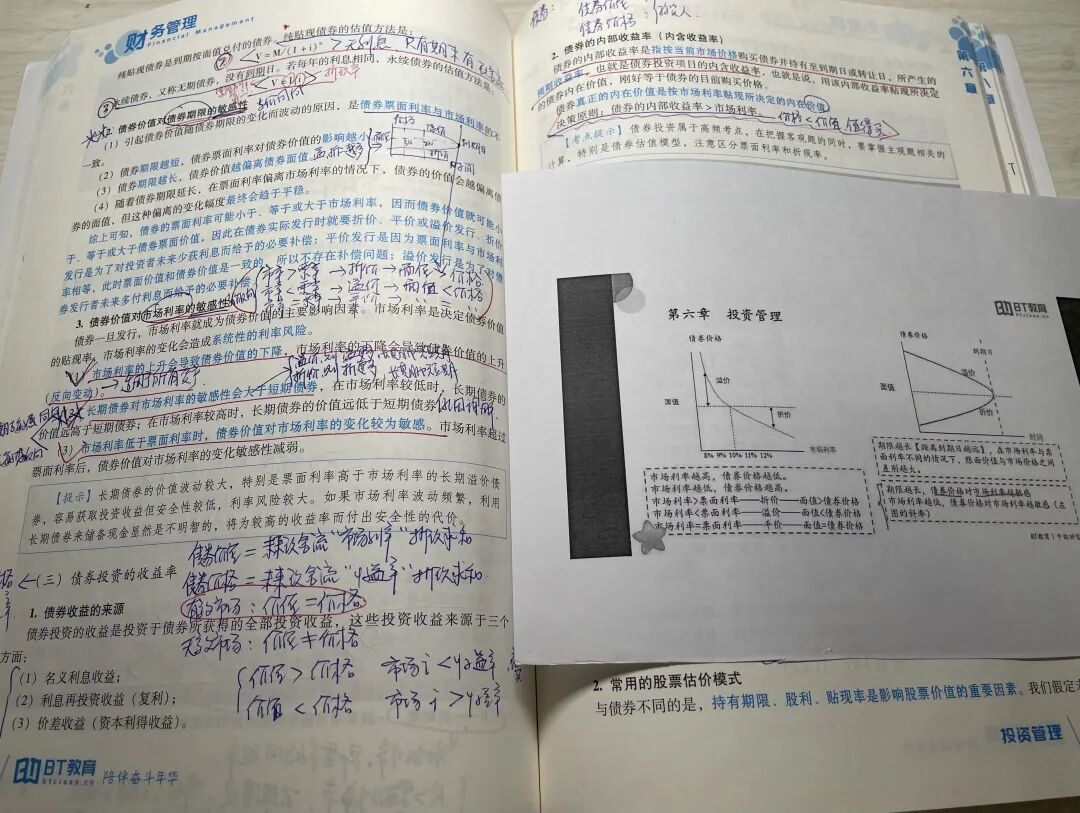 财务管理
Financial Management
纯贴现债券是到期按面值兑付的债券，纯贴现债券的估值方法是：
V=M/(1+i)ⁿ
无利息 只有期末有
永续债券，又称无期债券，没有到期日。若每年的利息相同，永续债券的估值方法是：
折现率
2. 债券价值对债券期限的敏感性
（1）引起债券价值随债券期限的变化而波动的原因，是债券票面利率与市场利率的不
一致。
（2）债券期限越短，债券票面利率对债券价值的影响越小
（3）债券期限越长，债券价值越偏离债券面值
（4）随着债券期限延长，在票面利率偏离市场利率的情况下，债券的价值会越偏离债
券的面值，但这种偏离的变化幅度最终会趋于平稳。
综上可知，债券的票面利率可能小于、等于或大于市场利率，因而债券价值就可能小
于、等于或大于债券票面价值，因此在债券实际发行时就要折价、平价或溢价发行。折价
发行是为了对投资者未来少获利息而给予的必要补偿；平价发行是因为票面利率与市场利
率相等，此时票面价值和债券价值是一致的，所以不存在补偿问题；溢价发行是为了对债
券发行者未来多付利息而给予的必要补偿
市率＞票率 → 折价 → 面值＞价格
市率＜票率 → 溢价 → 面值＜价格
市率＝票率 → 平价 →
3. 债券价值对市场利率的敏感性
债券一旦发行，市场利率就成为债券价值的主要影响因素。市场利率是决定债券价值
的贴现率，市场利率的变化会造成系统性的利率风险。
（1）市场利率的上升会导致债券价值的下降，市场利率的下降会导致债券价值的上升
（反向变动）。
适用所有
（2）长期债券对市场利率的敏感性会大于短期债券，在市场利率较低时，长期债券的
价值远高于短期债券；在市场利率较高时，长期债券的价值远低于短期债券
（3）市场利率低于票面利率时，债券价值对市场利率的变化较为敏感。市场利率超过
票面利率后，债券价值对市场利率的变化敏感性减弱。
【提示】长期债券的价值波动较大，特别是票面利率高于市场利率的长期溢价债
券，容易获取投资收益但安全性较低，利率风险较大。如果市场利率波动频繁，利用
长期债券来储备现金显然是不明智的，将为较高的收益率而付出安全性的代价。
债券价值＝未来现金流“市场利率”折现求和
（三）债券投资的收益率
债券价格＝未来现金流“收益率”折现求和
有效市场：价值＝价格
1. 债券收益的来源
债券投资的收益是投资于债券所获得的全部投资收益，这些投资收益来源于三个
无效市场：价值≠价格
方面：
（1）名义利息收益；
（2）利息再投资收益（复利）；
（3）价差收益（资本利得收益）。
价值＞价格 市场i＜收益率
价值＜价格 市场i＞收益率
BT教育
btclass.cn
陪伴奋斗年华
债券价值
债券价格
2. 债券的内部收益率（内含收益率）
债券的内部收益率是指按当前市场价格购买债券并持有至到期日或转让日，所产生的
预期收益率，也就是债券投资项目的内含收益率。也就是说，用该内部收益率贴现所决定
的债券内在价值，刚好等于债券的目前购买价格。
债券真正的内在价值是按市场利率贴现所决定的内在价值
决策原则：债券的内部收益率＞市场利率。
价格＜价值 值得买
【考点提示】债券投资属于高频考点，在把握客观题的同时，要掌握主观题相关的
计算，特别是债券估值模型，注意区分票面利率和折现率。
第六章
第六章 投资管理
BT教育
btclass.cn
债券价格
溢价
面值
折价
8% 9% 10% 11% 12%
市场利率
市场利率越高，债券价格越低。
市场利率越低，债券价格越高。
市场利率>票面利率——折价——面值>债券价格
市场利率<票面利率——溢价——面值<债券价格
市场利率=票面利率——平价——面值=债券价格
债券价格
到期日
溢价
面值
折价
时间
期限越长【距离到期日越远】，在市场利率与票
面利率不同的情况下，账面价值与市场价格之间
差别越大。
期限越长，债券价格对市场利率越敏感
市场利率越低，债券价格对市场利率越敏感（左
图的斜率）
BT教育
2. 常用的股票估价模式
与债券不同的是，持有期限、股利、贴现率是影响股票价值的重要因素。我们假定
投资管理